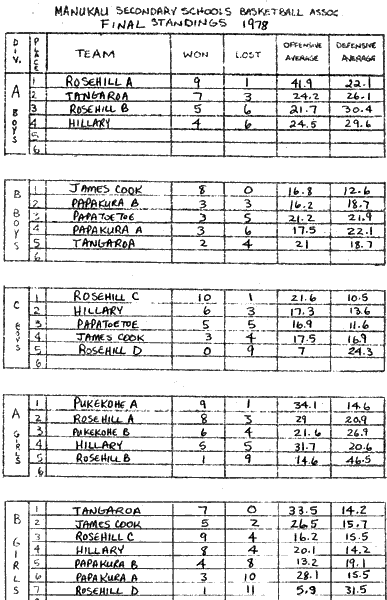 MANUKAU SECONDARY SCHOOLS BASKETBALL ASSOC
FINAL STANDINGS 1978
DIV. PLACE TEAM WON LOST OFFENSIVE AVERAGE DEFENSIVE AVERAGE
A BOYS
1 ROSEHILL A 9 1 41.9 22.1
2 TANGAROA 7 3 24.2 26.1
3 ROSEHILL B 5 6 21.7 30.4
4 HILLARY 4 6 24.5 29.6
5
6
B BOYS
1 JAMES COOK 8 0 16.8 12.6
2 PAPAKURA B 3 3 16.2 18.7
3 PAPATOETOE 3 5 21.2 21.9
4 PAPAKURA A 3 6 17.5 22.1
5 TANGAROA 2 4 21 18.7
6
C BOYS
1 ROSEHILL C 10 1 21.6 10.5
2 HILLARY 6 3 17.3 13.6
3 PAPATOETOE 5 5 16.9 11.6
4 JAMES COOK 3 4 17.5 16.9
5 ROSEHILL D 0 9 7 24.3
6
A GIRLS
1 PUKEKOHE A 9 1 34.1 14.6
2 ROSEHILL A 8 3 29 20.9
3 PUKEKOHE B 6 4 21.6 26.9
4 HILLARY 5 5 31.7 20.6
5 ROSEHILL B 1 9 14.6 46.5
6
B GIRLS
1 TANGAROA 7 0 33.5 14.2
2 JAMES COOK 5 2 26.5 15.7
3 ROSEHILL C 9 4 16.2 15.5
4 HILLARY 8 4 20.1 14.2
5 PAPAKURA B 4 8 13.2 19.1
6 PAPAKURA A 3 10 28.1 15.5
7 ROSEHILL D 1 11 5.9 31.5